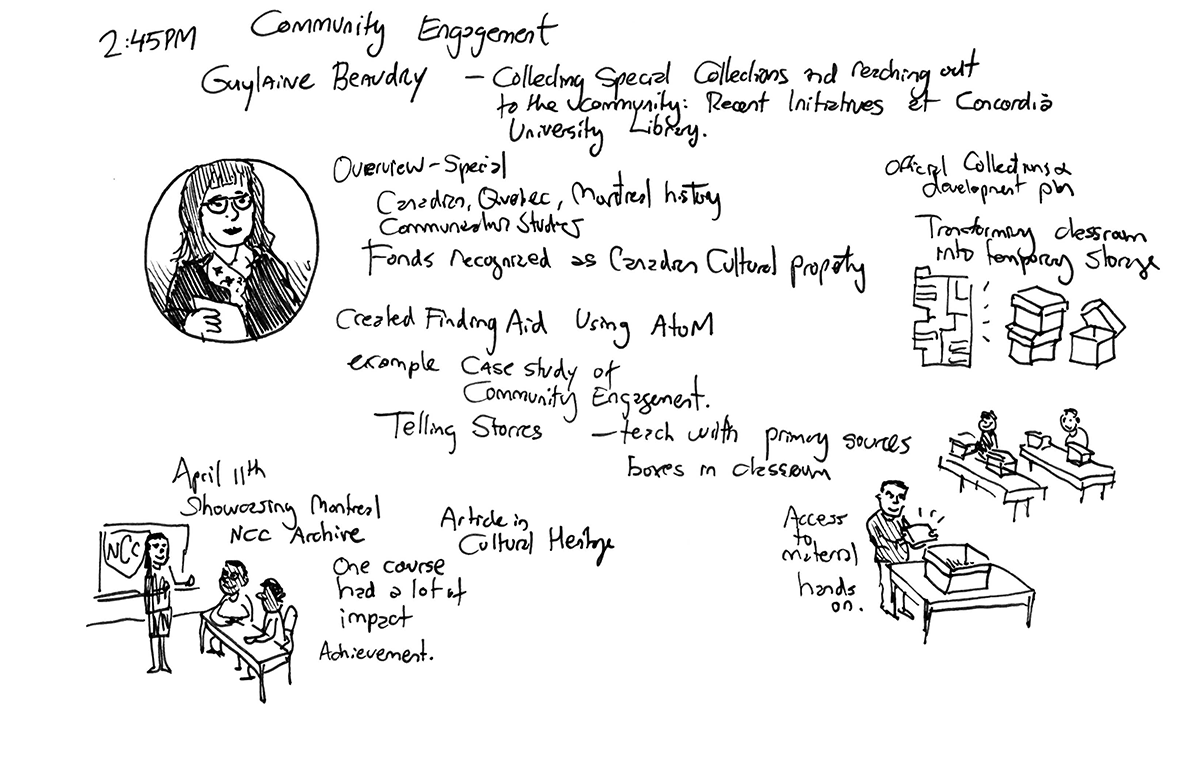 2:45PM Community Engagement
Guylaine Beaudry – Collecting Special Collections and reaching out
to the community: Recent Initiatives at Concordia
University Library.
Overview – Special
Canadian, Quebec, Montreal history
Communication Studies
Fonds recognized as Canadian Cultural property
Created Finding Aid Using AtoM
example Case study of
Community Engagement.
Telling Stories – teach with primary sources
boxes in classroom
Official Collections &
development plan
Transforming classroom
into temporary storage
April 11th
Showcasing Montreal
NCC Archive
NCC
Article in
Cultural Heritage
One course
had a lot of
impact
Achievement.
Access
to
material
hands
on.